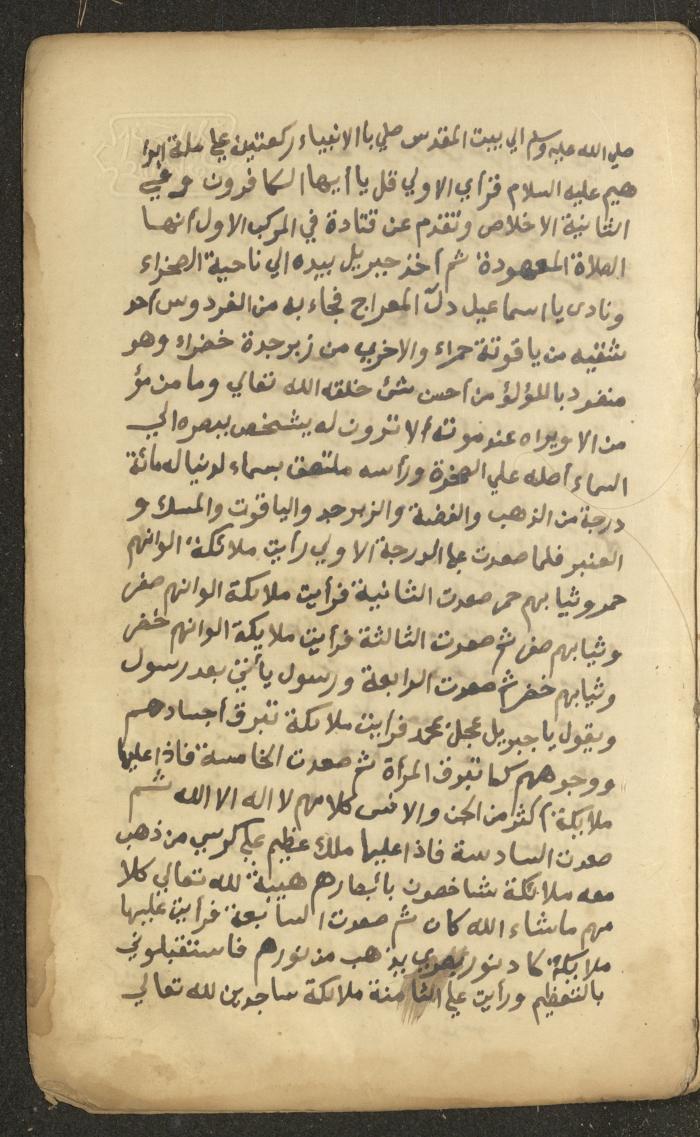 صلي الله عليه وسلم الي بيت المقدس صلي باالانبياء ركعتين علي ملة ابرا
هيم عليه السلام قرأي الاولي قل يا أيها الكافرون وفي
الثانية الاخلاص وتقدم عن قتادة في المركب الاول أنها
الصلاة المعهودة ثم أخذ جبريل بيده الي ناحية الصخراء
ونادى يا اسماعيل دلّ المعراج فجاء به من الفردوس أحد
شقيه من ياقوتة حمراء والاخري من زبرجدة خضراء وهو
منضود باللؤلؤ من أحسن شئ خلقه الله تعالي وما من مؤ
من الا ويراه عند موته ألا ترون له يشخص ببصره الي
السماء أصله علي الصخرة ورأسه ملتصق بسماء لدنيا له مائة
درجة من الذهب والفضة والزبرجد والياقوت والمسك و
العنبر فلما صعدت علي الدرجة الاولي رأيت ملائكة الوانهم
حمر وثيابهم حمر صعدت الثانية فرأيت ملايكة الوانهم صفر
وثيابهم صفر ثم صعدت الثالثة فرأيت ملايكة الوانهم خضر
وثيابهم خضر ثم صعدت الرابعة ورسول يأتي بعد رسول
ويقول يا جبريل عجل بمحمد فرايت ملائكة تبرق أجسادهم
ووجوههم كما تبرق المرأة ثم صعدت الخامسة فاذا عليها
ملايكة أكثر من الجن والانس كلامهم لا اله الا الله ثم
صعدت السادسة فاذا عليها ملك عظيم علي كرسي من ذهب
معه ملائكة شاخصون بأبصارهم هيبة لله تعالي كلا
مهم ماشاء الله كان ثم صعدت السابعة فرأيت عليها
ملايكة كاد نور بصري يذهب من نورهم فاستقبلوني
بالتعظيم ورأيت علي الثامنة ملائكة ساجدين لله تعالي